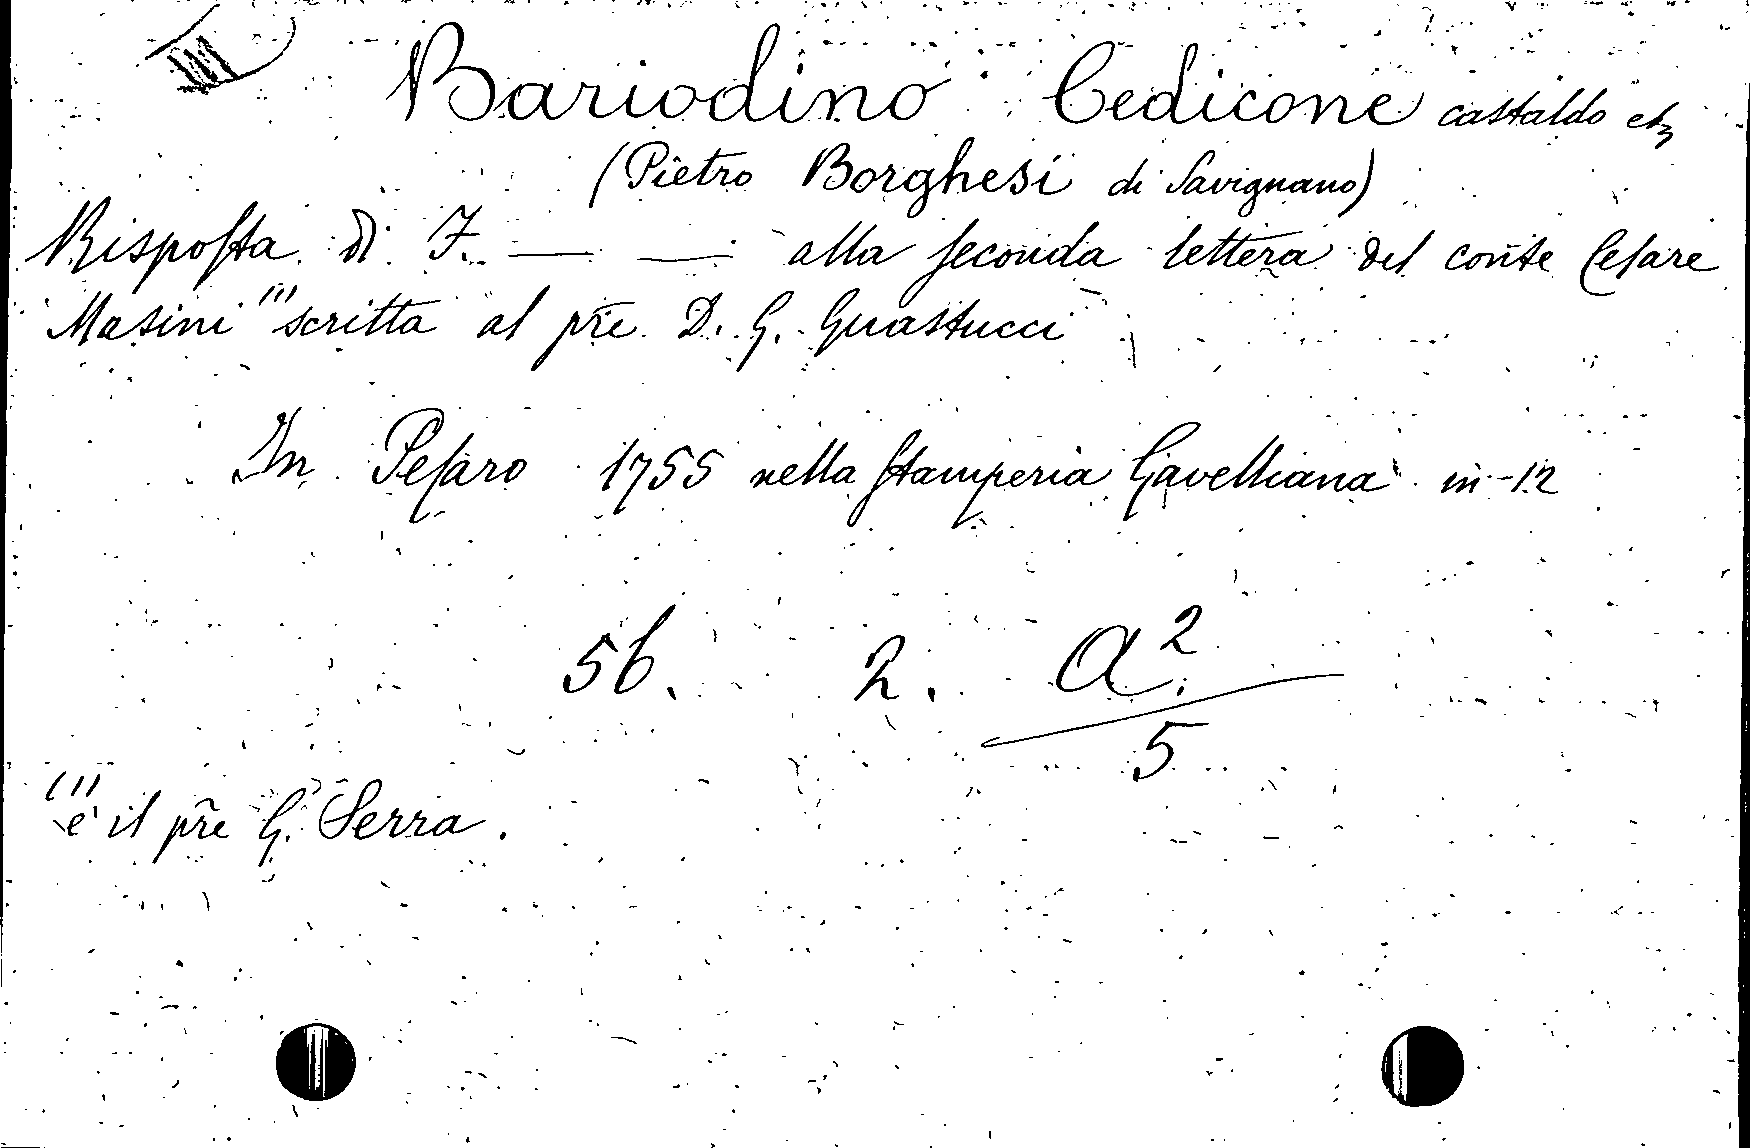 Bariodino Cedicone castaldo etc
(Pietro Borghesi di Savignano)
Risposta di F. — — alla seconda lettera del conte Cesare
Masini (1) scritta al pre D. G. Guastucci
In Pesaro 1755 nella Stamperia Gavelliana in-12
56. 2. a²
5
(1) è il pre G. Serra.